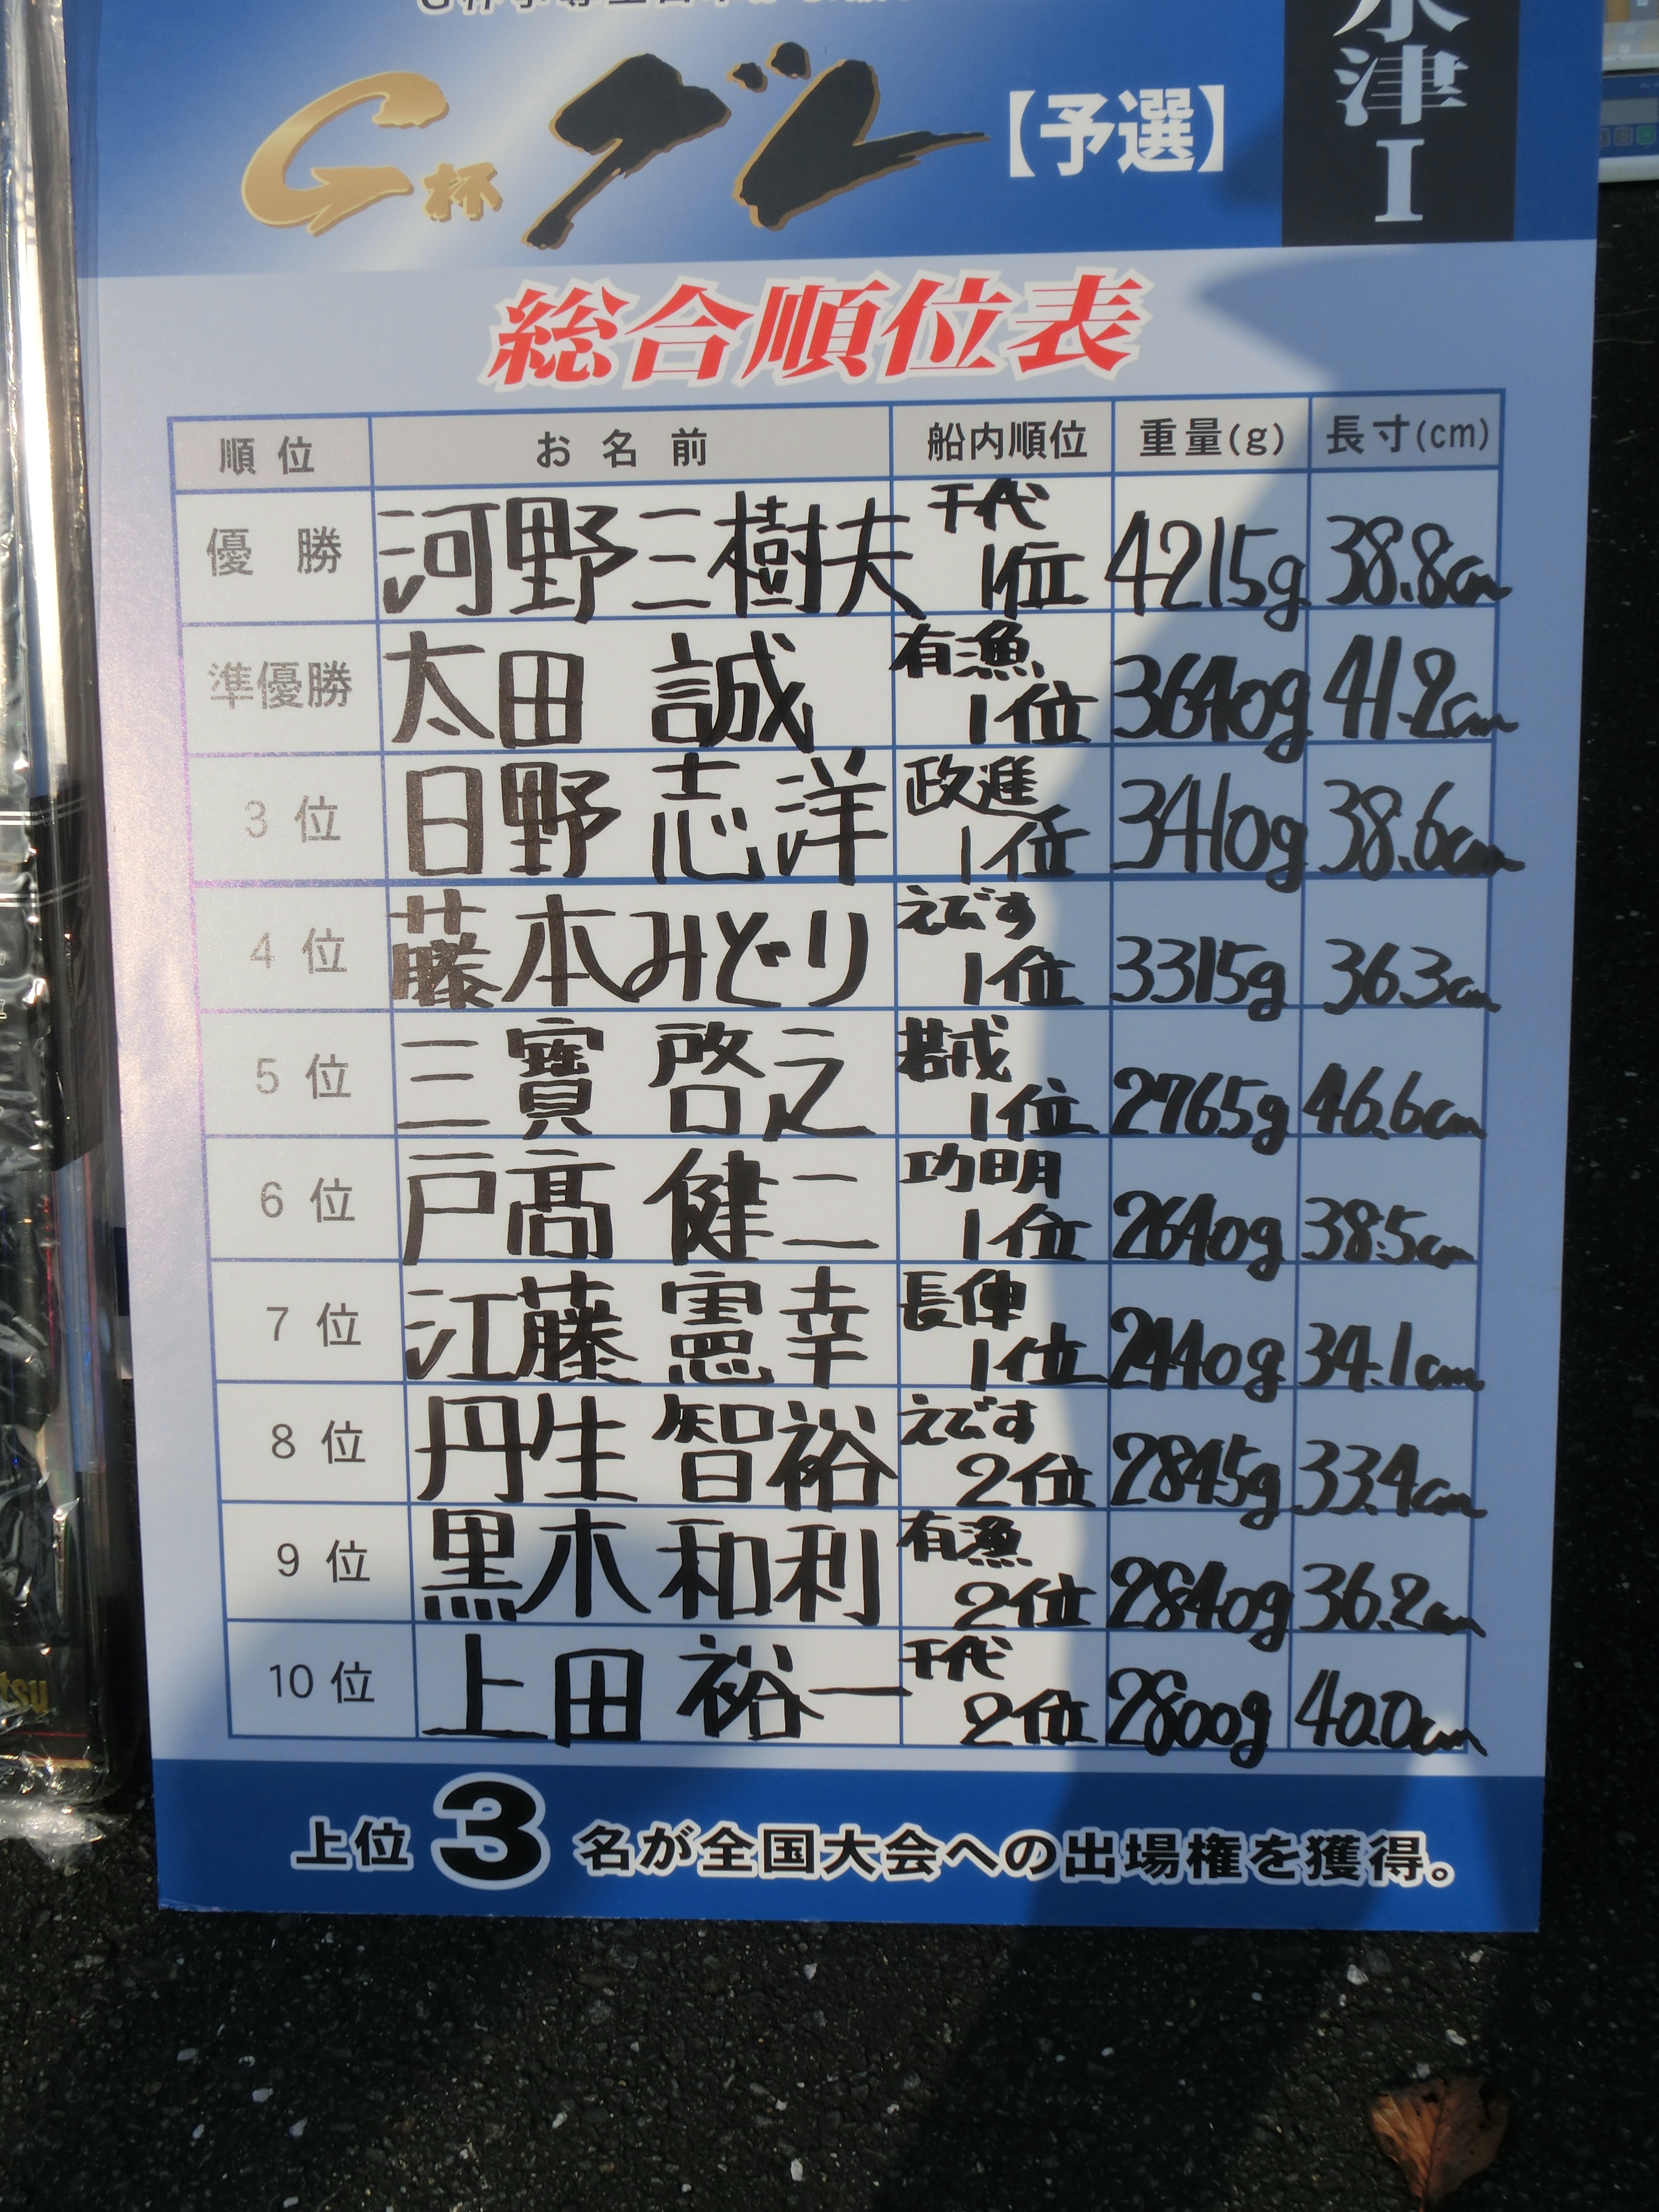 G杯 グレ 【予選】
津I
総合順位表
順位 お名前 船内順位 重量(g) 長寸(cm)
優勝 河野三樹夫 千代 1位 4215g 38.8cm
準優勝 太田 誠 有漁 1位 3640g 41.2cm
3位 日野 志洋 政進 1位 3410g 38.6cm
4位 藤本みどり えびす 1位 3315g 36.3cm
5位 三寶 啓之 1位 2765g 46.6cm
6位 戸髙 健二 功明 1位 2640g 38.5cm
7位 江藤 憲幸 長伸 1位 2440g 34.1cm
8位 丹生 智裕 えびす 2位 2845g 33.4cm
9位 黒木 和利 有漁 2位 2840g 36.2cm
10位 上田 裕一 千代 2位 2800g 40.0cm
上位3名が全国大会への出場権を獲得。